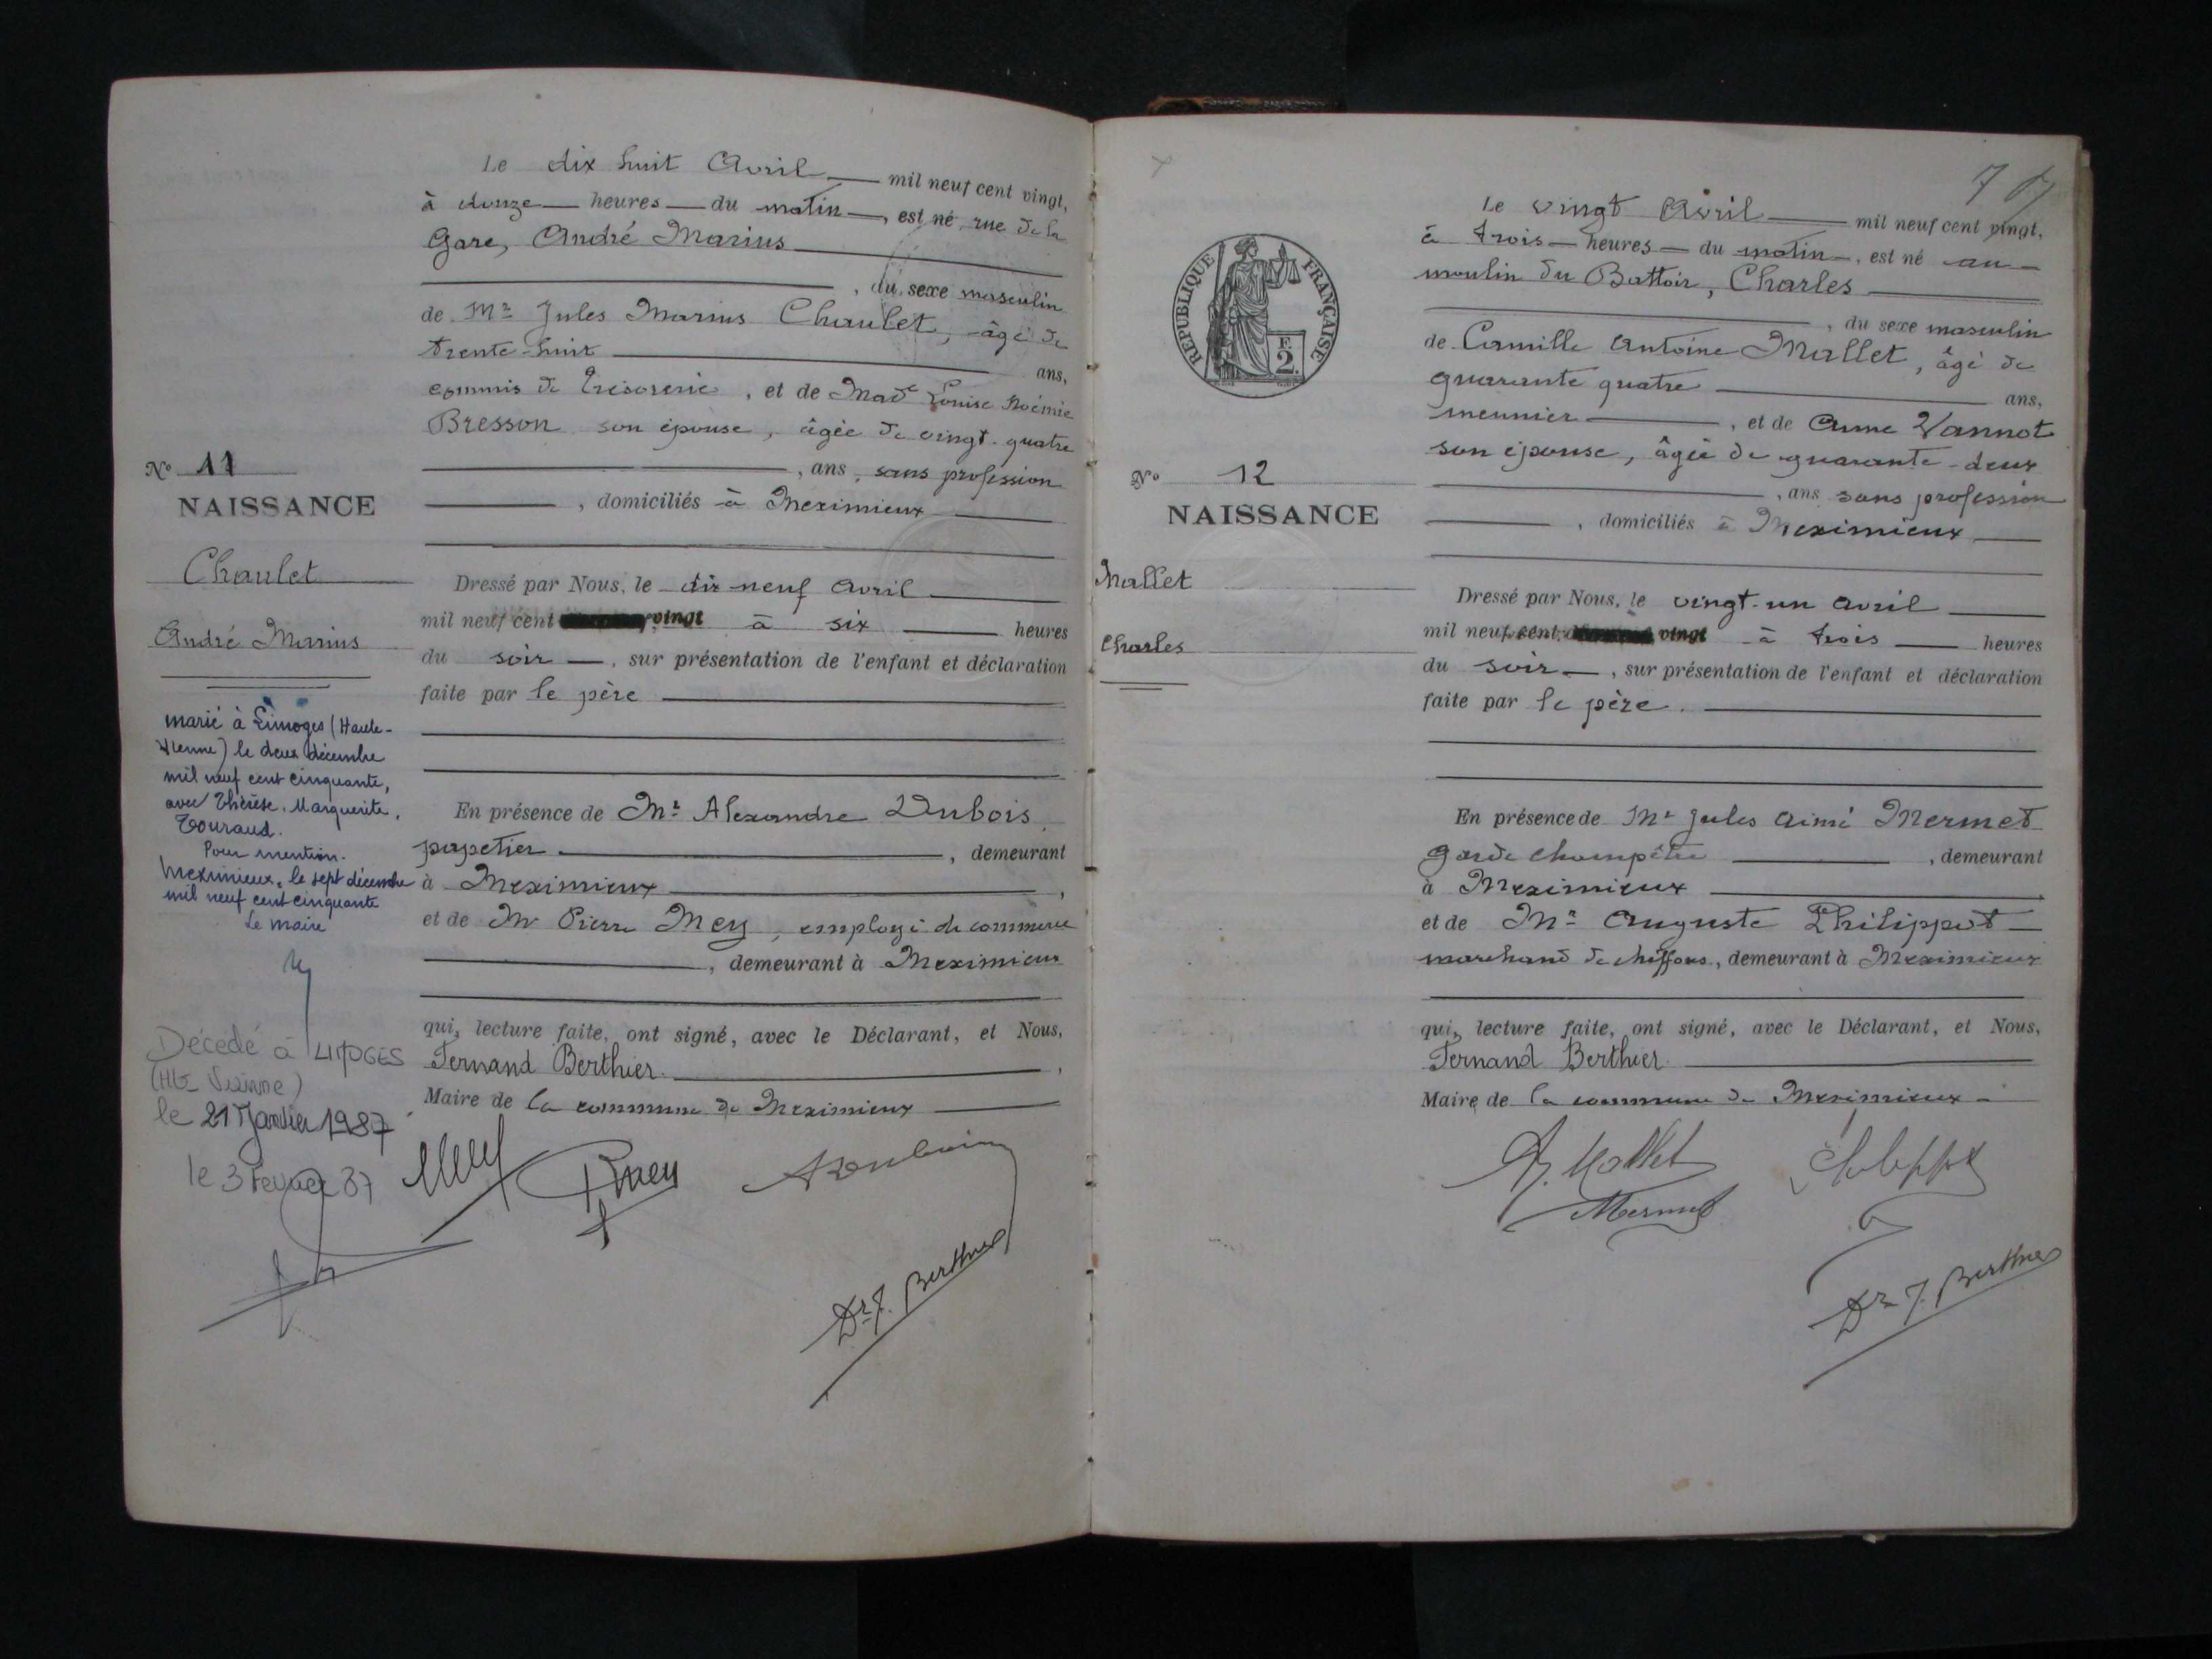 Le dix huit Avril mil neuf cent vingt,
à onze heures du matin, est né rue de la
Gare, André Marius
, du sexe masculin
de Mr Jules Marius Chaulet, âgé de
trente-huit ans,
commis de Trésorerie, et de Made Louise Noémie
Bresson son épouse, âgée de vingt-quatre
, ans, sans profession
, domiciliés à Meximieux
Dressé par Nous, le dix-neuf Avril
mil neuf cent vingt à six heures
du soir, sur présentation de l'enfant et déclaration
faite par le père
En présence de Mr Alexandre Dubois,
papetier, demeurant
à Meximieux,
et de Mr Pierre Mey, employé de commerce
, demeurant à Meximieux
qui, lecture faite, ont signé, avec le Déclarant, et Nous,
Fernand Berthier,
Maire de la commune de Meximieux
Dr F. Berthier
No 11
NAISSANCE
Chaulet
André Marius
marié à Limoges (Haute-
Vienne) le deux décembre
mil neuf cent cinquante,
avec Thérèse, Marguerite,
Touraud.
Pour mention.
Meximieux, le sept décembre
mil neuf cent cinquante
Le maire
Décédé à LIMOGES
(Hte Vienne)
le 21 Janvier 1987
le 3 Février 87
7
Le vingt Avril mil neuf cent vingt,
à trois heures du matin, est né au
moulin du Battoir, Charles
, du sexe masculin
de Camille Antoine Mallet, âgé de
quarante quatre ans,
meunier, et de Anne Vannot
son épouse, âgée de quarante-deux
, ans sans profession
, domiciliés à Meximieux
Dressé par Nous, le vingt-un avril
mil neuf cent vingt à trois heures
du soir, sur présentation de l'enfant et déclaration
faite par le père.
En présence de Mr Jules Aimé Mermet
Garde Champêtre, demeurant
à Meximieux
et de Mr Auguste Philippot
marchand de chiffons, demeurant à Meximieux
qui, lecture faite, ont signé, avec le Déclarant, et Nous,
Fernand Berthier
Maire de la commune de Meximieux
A. Mallet
Mermet
Dr F. Berthier
RÉPUBLIQUE FRANÇAISE
F.
2.
No 12
NAISSANCE
Mallet
Charles